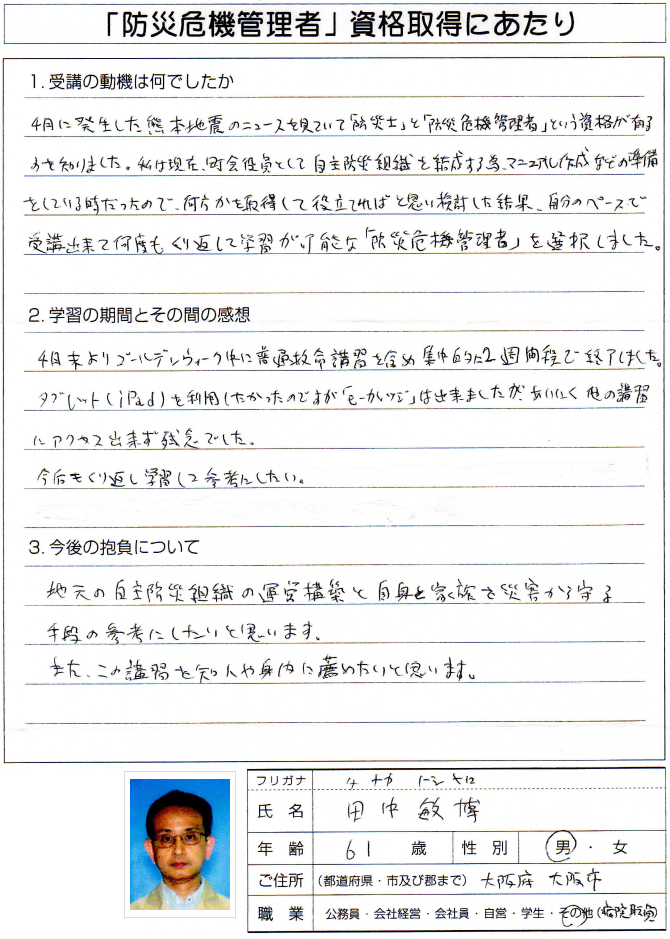 「防災危機管理者」資格取得にあたり
1. 受講の動機は何でしたか
4月に発生した熊本地震のニュースを見ていて「防災士」と「防災危機管理者」という資格が有る
事を知りました。私は現在、町会役員として自主防災組織を結成する為、マニュアル作成などの準備
をしている時だったので、何らかを取得して役立てればと思い検討した結果、自分のペースで
受講出来て何度もくり返して学習が可能な「防災危機管理者」を選択しました。
2. 学習の期間とその間の感想
4月末よりゴールデンウィーク中に普通救命講習を含め集中的に2週間程で終了しました。
タブレット(iPad)を利用したかったのですが「e-カレッジ」は出来ましたが、あいにく他の講習
にアクセス出来ず残念でした。
今后もくり返し学習して参考にしたい。
3. 今後の抱負について
地元の自主防災組織の運営構築と自身と家族を災害から守る
手段の参考にしたいと思います。
また、この講習を知人や身内に薦めたいと思います。
フリガナ タナカ トシヒロ
氏名 田中敏博
年齢 61 歳 性別 男・女
ご住所 (都道府県・市及び郡まで) 大阪府 大阪市
職業 公務員・会社経営・会社員・自営・学生・その他(病院職員)